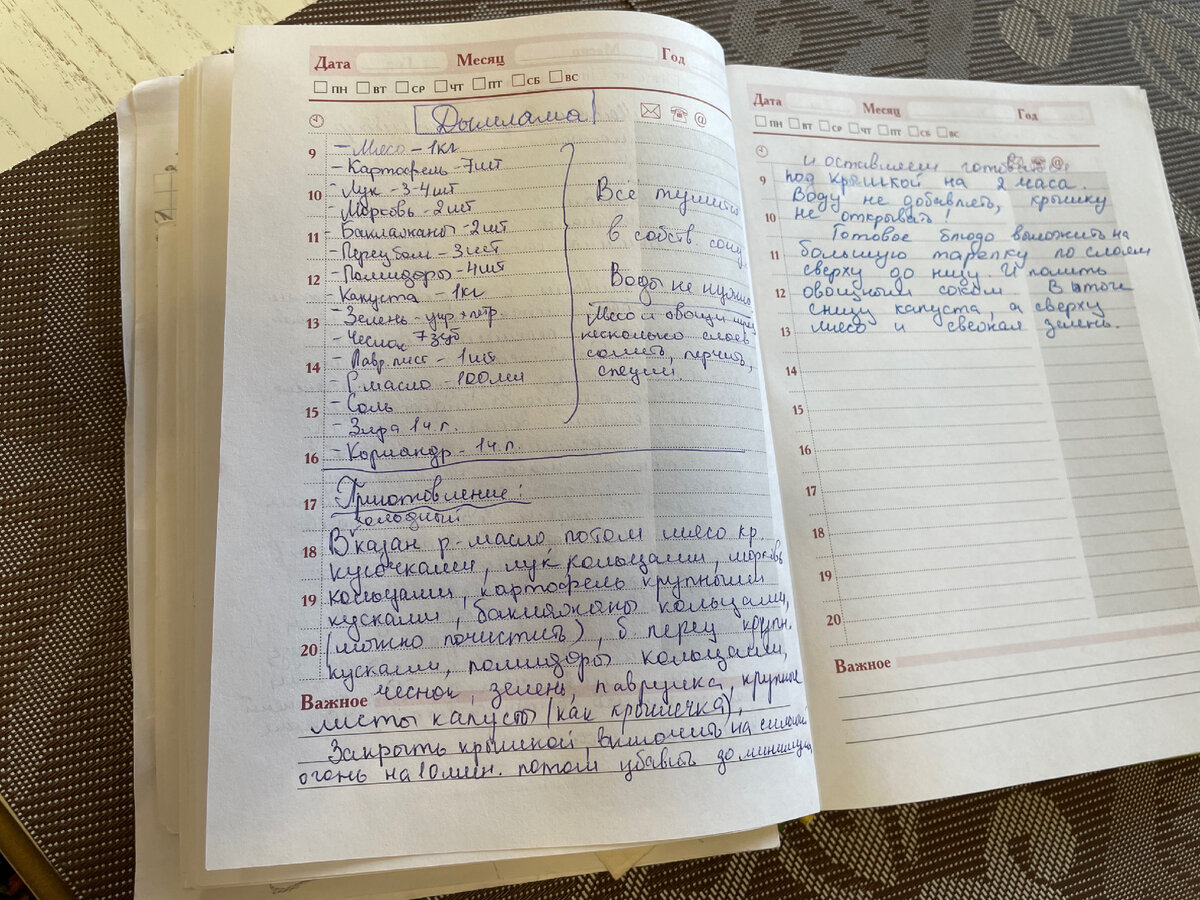 Дата Месяц Год
ПН ВТ СР ЧТ ПТ СБ ВС
Дымлама
9 - Мясо - 1кг
- Картофель - 7шт
10 - Лук - 3-4шт
- Морковь - 2шт
11 - Баклажаны - 2шт
- Перец бол - 3шт
12 - Помидоры - 4шт
- Капуста - 1кг
13 - Зелень - укр + петр
- Чеснок 7зуб
14 - Лавр. лист - 1шт
- Р. масло - 100мл
15 - Соль
- Зира 1ч л.
16 - Кориандр - 1ч л.
Всё тушится
в собств соку.
Воды не нужно
Мясо и овощи
несколько слоев
солить, перчить,
специи.
17 Приготовление:
холодный
18 В казан р-масло потом мясо кр.
кусочками, лук кольцами, морковь
19 кольцами, картофель крупными
кусками, баклажаны кольцами,
20 (можно почистить), б перец крупн.
кусками, помидоры кольцами,
Важное чеснок, зелень, лаврушка, крупные
листы капусты (как крышечка),
Закрыть крышкой, включить на сильный
огонь на 10 мин. потом убавить до минимума
Дата Месяц Год
ПН ВТ СР ЧТ ПТ СБ ВС
и оставляем готовится
9 под крышкой на 2 часа.
Воду не добавлять, крышку
10 не открывать!
Готовое блюдо выложить на
11 большую тарелку по слоям
сверху до низу. И полить
12 овощным соком. В итоге
снизу капуста, а сверху
13 мясо и свежая зелень.
14
15
16
17
18
19
20
Важное